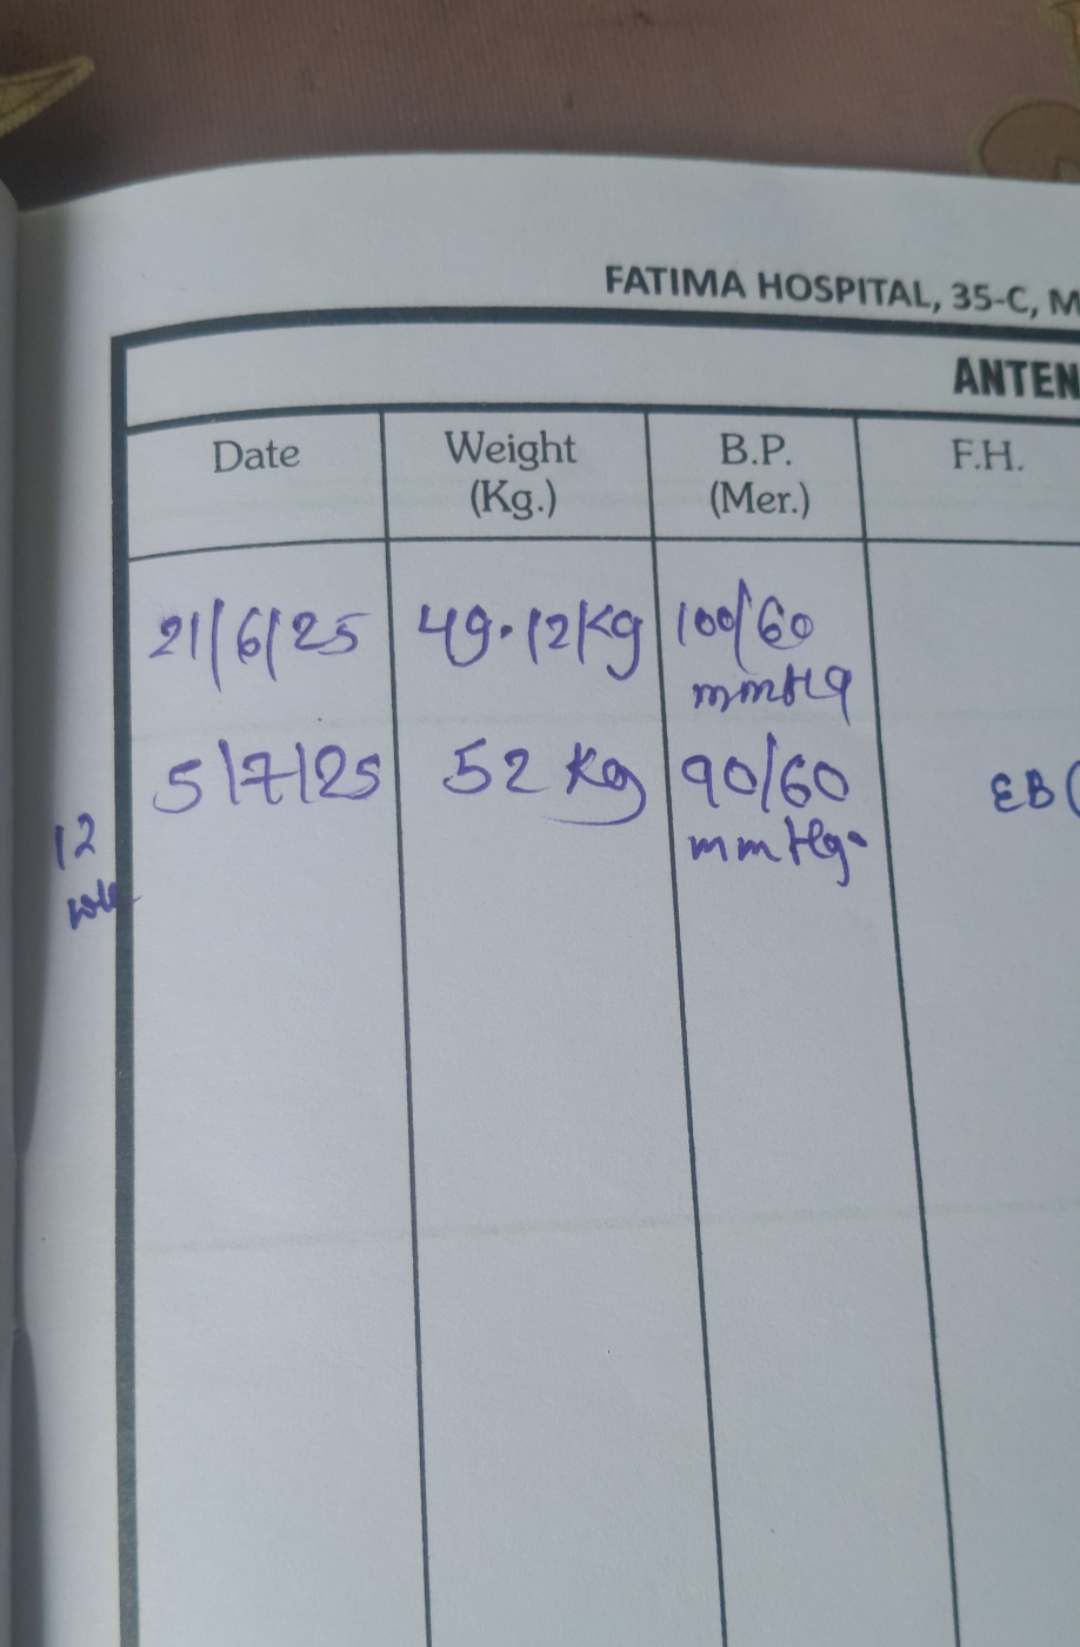 FATIMA HOSPITAL, 35-C, M
ANTEN
Date Weight (Kg.) B.P. (Mer.) F.H.
21/6/25 49.12kg 100/60 mmHg
5/7/25 52 kg 90/60 mmHg. EB
12